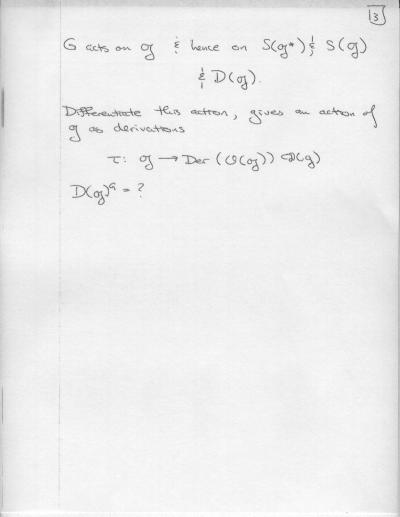 3
G acts on 𝔤 & hence on S(𝔤*) & S(𝔤)
& D(𝔤).
Differentiate this action, gives an action of
𝔤 as derivations
τ: 𝔤 → Der(O(𝔤)) ⊂ D(𝔤)
D(𝔤)^G = ?